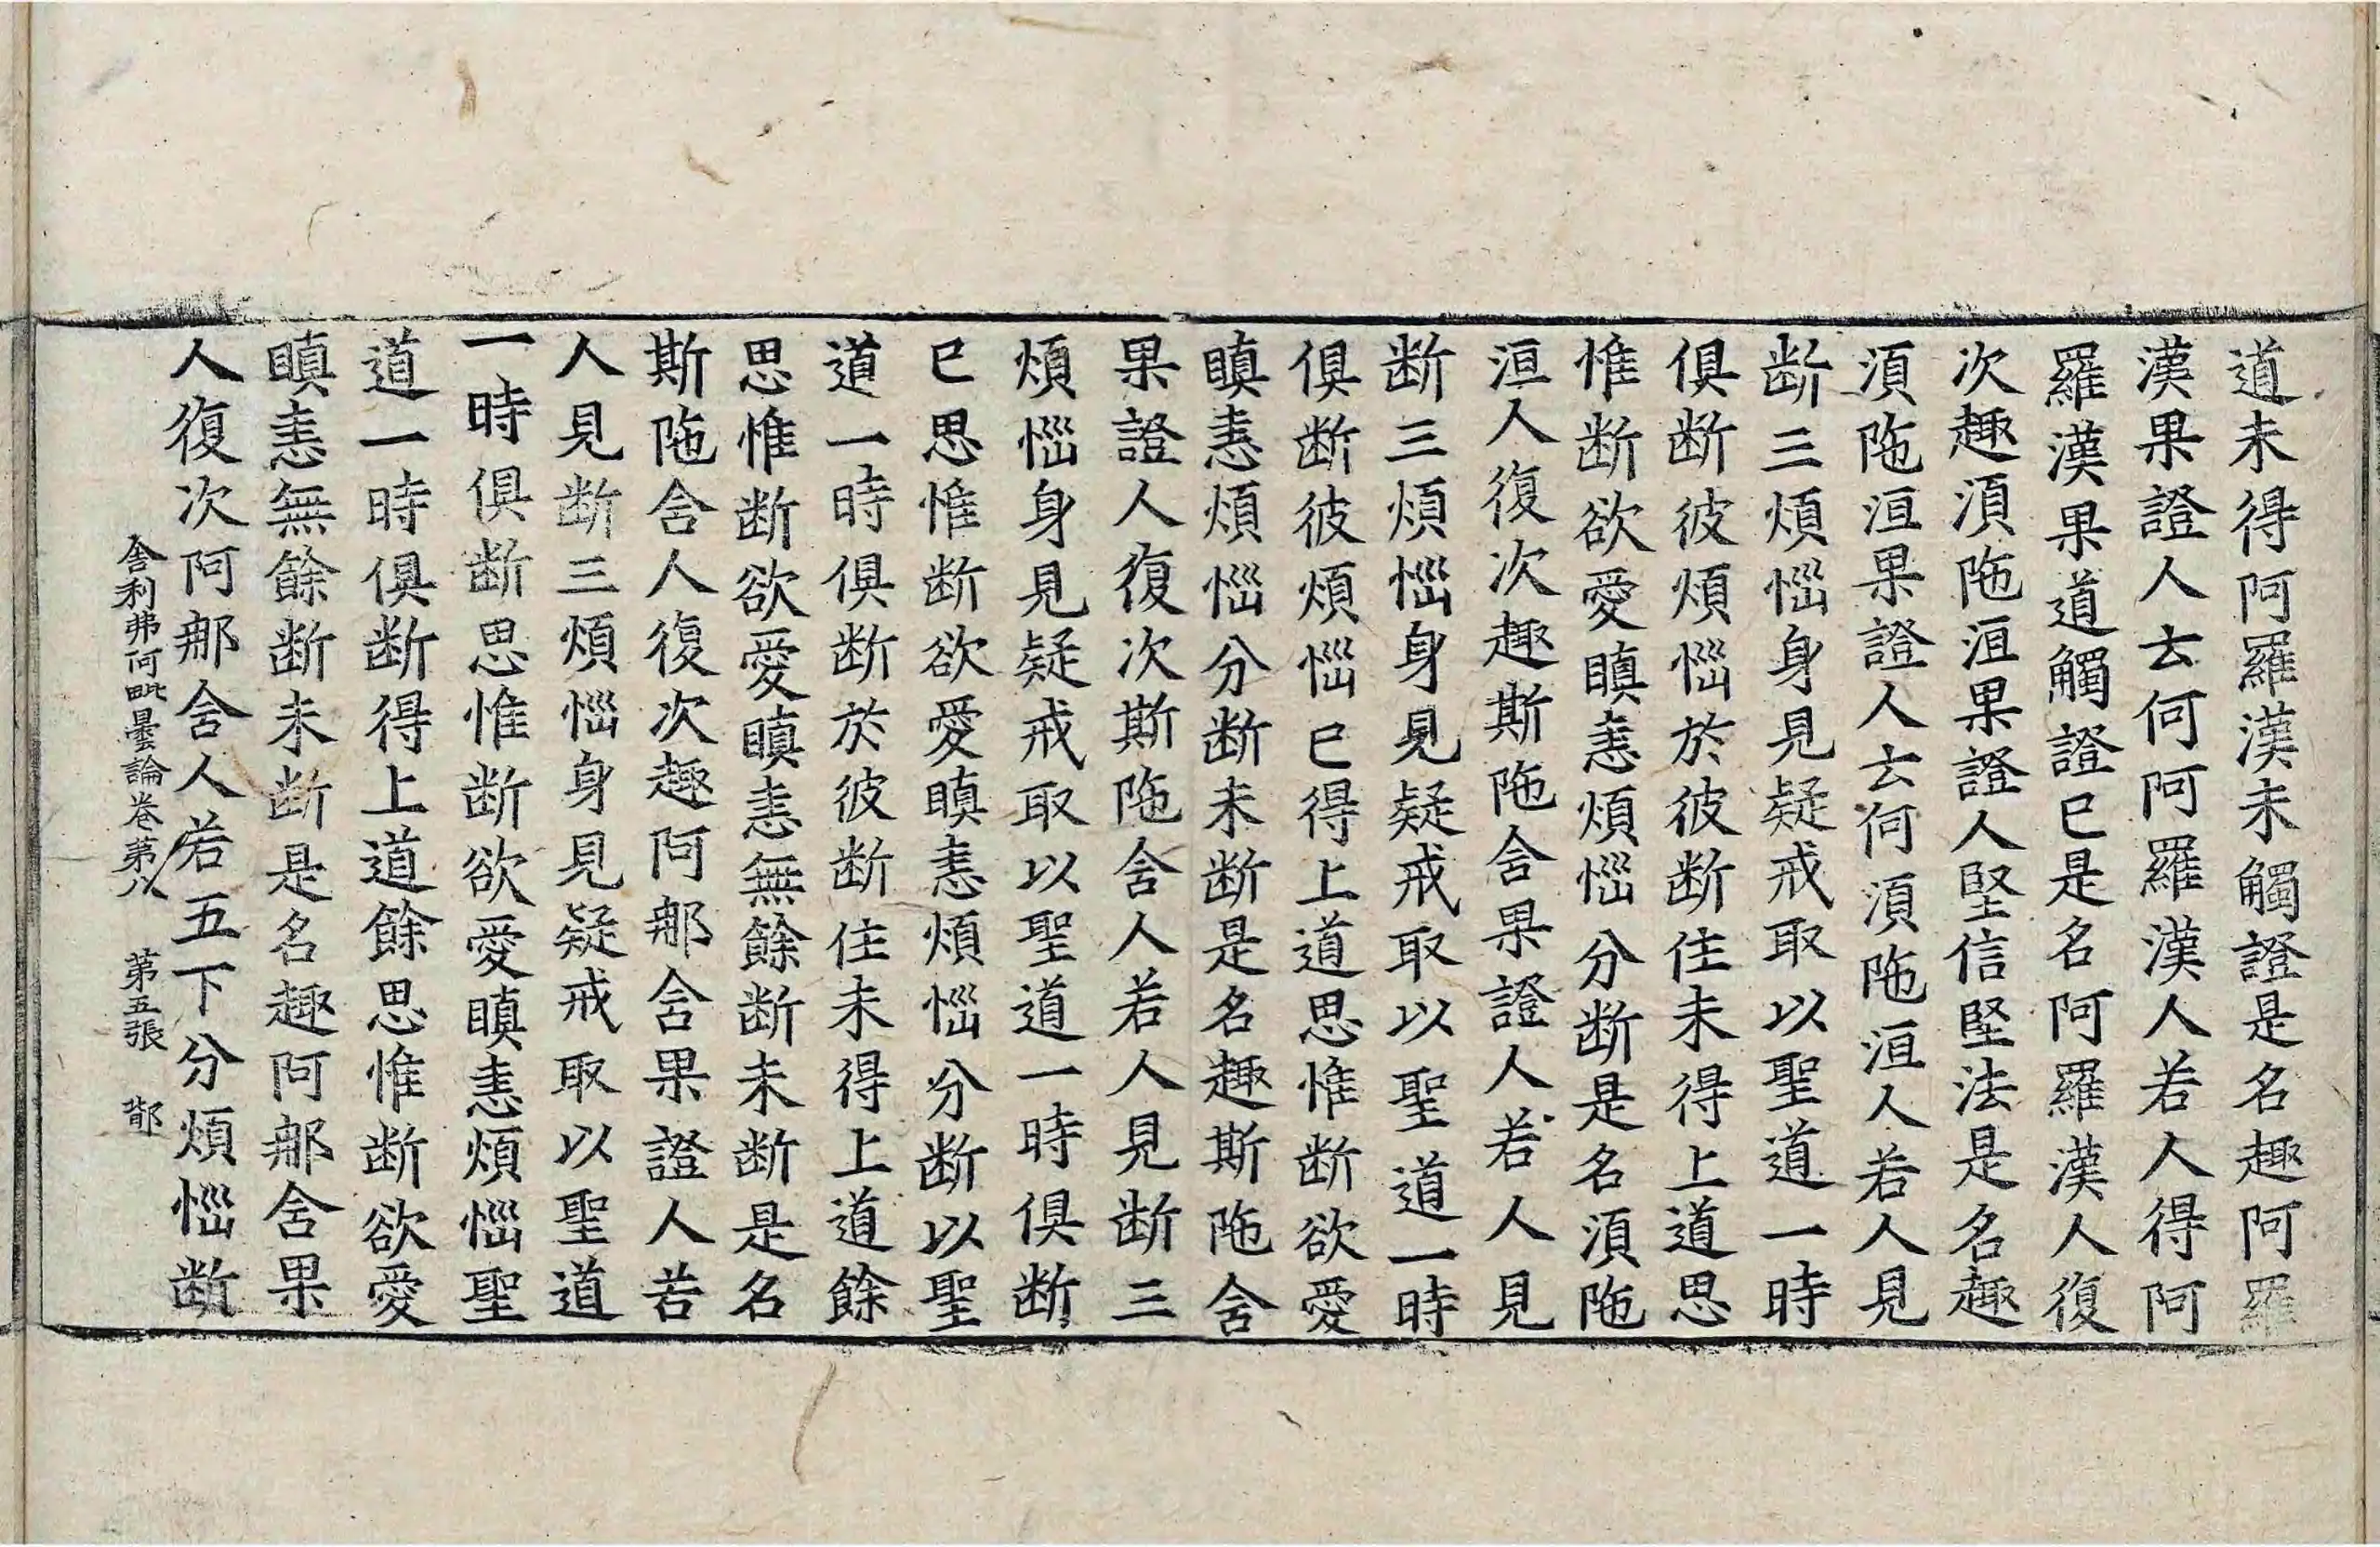 道未得阿羅漢未觸證是名趣阿羅
漢果證人云何阿羅漢人若人得阿
羅漢果道觸證已是名阿羅漢人復
次趣須陁洹果證人堅信堅法是名趣
須陁洹果證人云何須陁洹人若人見
断三煩惱身見疑戒取以聖道一時
俱断彼煩惱於彼断住未得上道思
惟断欲愛瞋恚煩惱分断是名須陁
洹人復次趣斯陁舍果證人若人見
断三煩惱身見疑戒取以聖道一時
俱断彼煩惱已得上道思惟断欲愛
瞋恚煩惱分断未断是名趣斯陁舍
果證人復次斯陁舍人若人見断三
煩惱身見疑戒取以聖道一時俱断
已思惟断欲愛瞋恚煩惱分断以聖
道一時俱断於彼断住未得上道餘
思惟断欲愛瞋恚無餘断未断是名
斯陁舍人復次趣阿那舍果證人若
人見断三煩惱身見疑戒取以聖道
一時俱断思惟断欲愛瞋恚煩惱聖
道一時俱断得上道餘思惟断欲愛
瞋恚無餘断未断是名趣阿那舍果
人復次阿那舍人若五下分煩惱断
舍利弗阿毗曇論卷第八 第五張